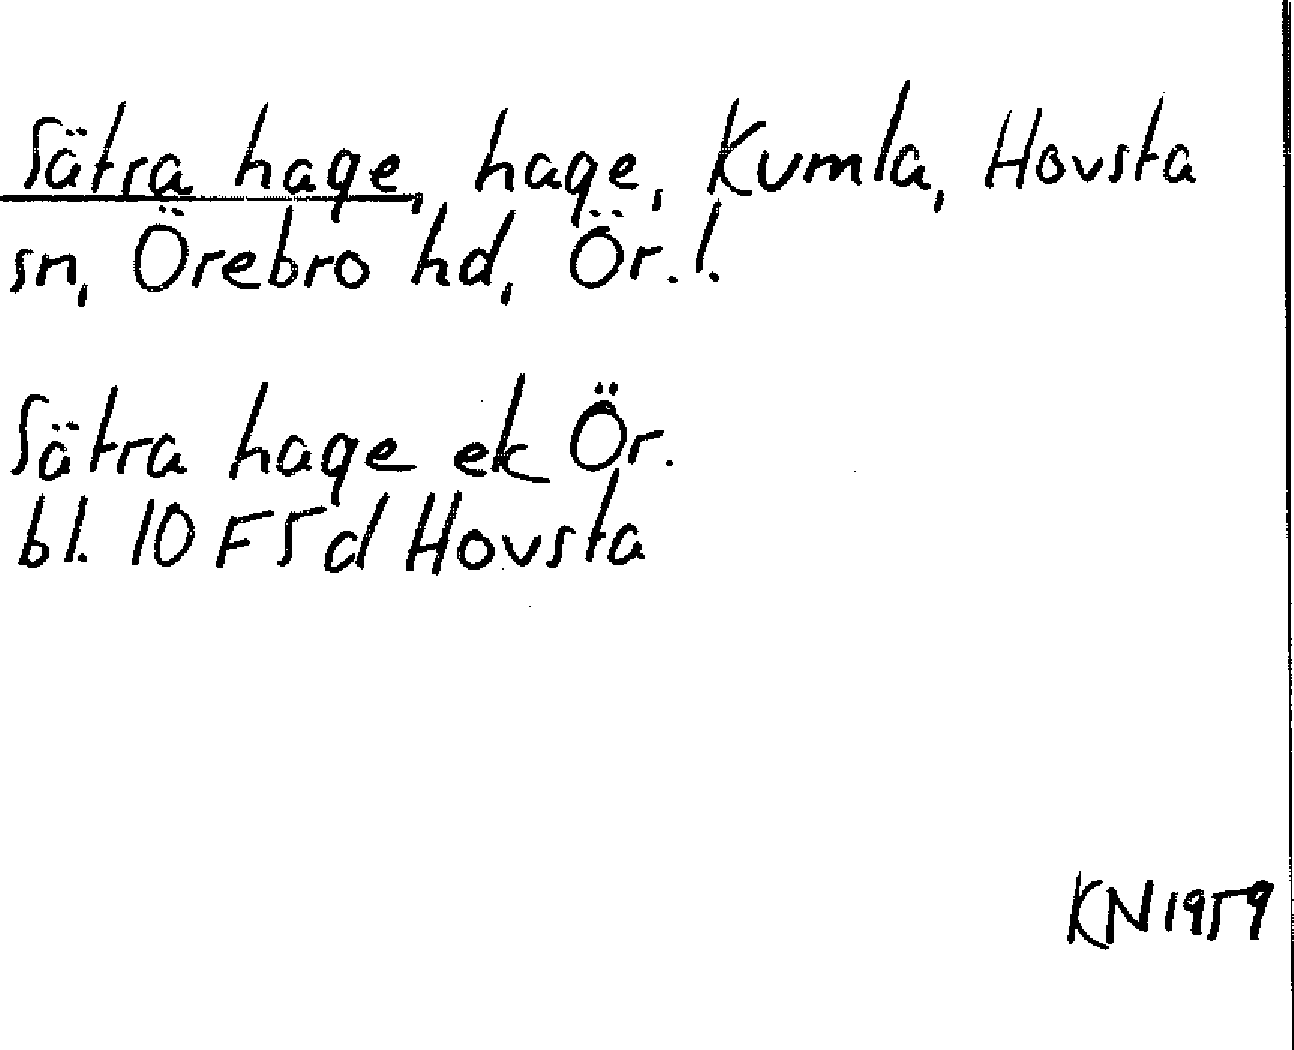 Sätra hage, hage, Kumla, Hovsta
sn, Örebro hd, Ör. l.
Sätra hage ek Ör.
bl. 10 F 5 d Hovsta
KN 1959